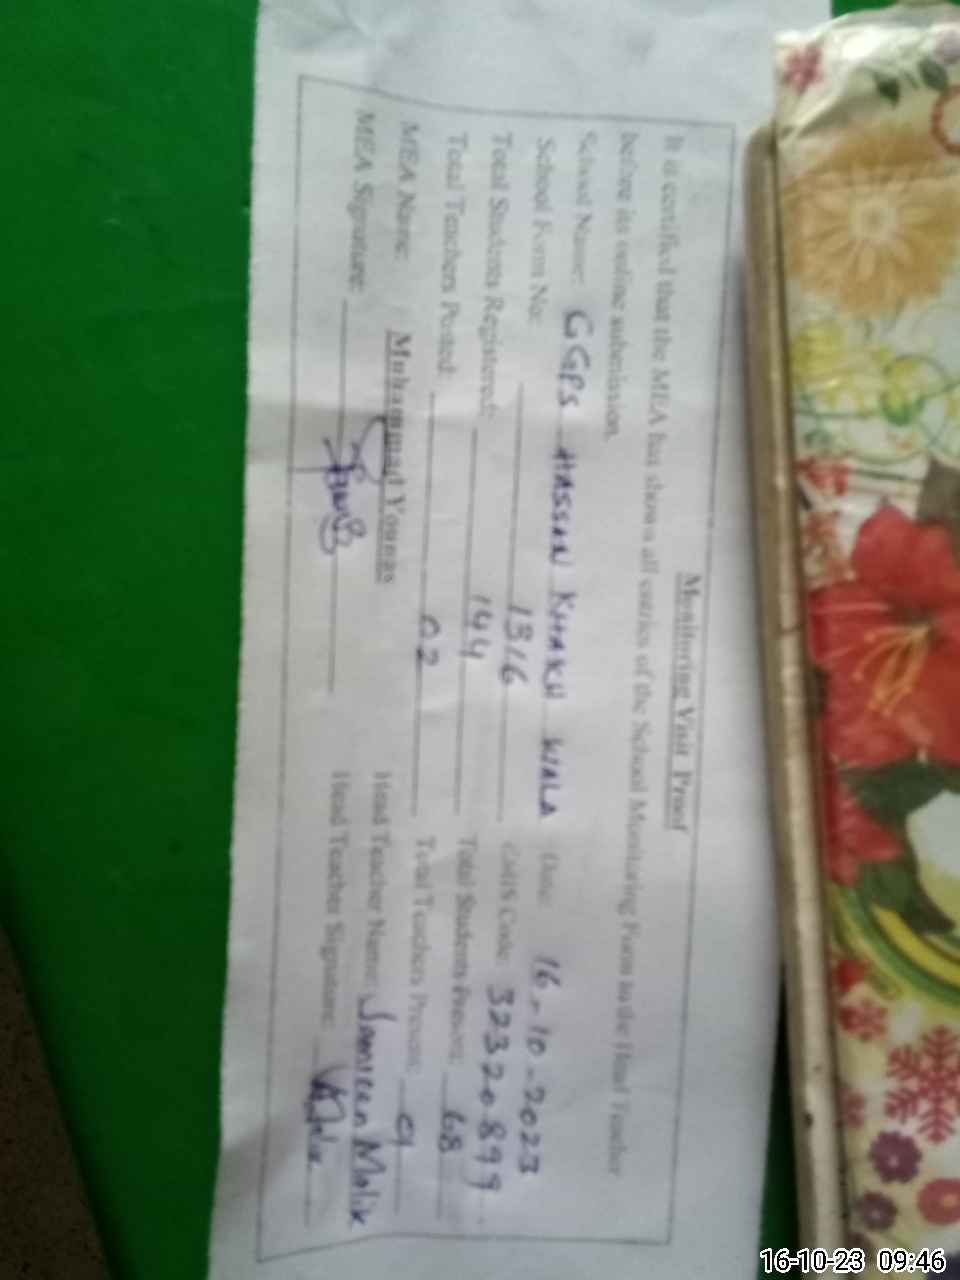 Monitoring Visit Proof
It is certified that the MEA has shown all entries of the School Monitoring Form to the Head Teacher
before its online submission.
School Name: GGPS HASSAN KHAKH WALA Date: 16-10-2023
School Form No: 1316 EMIS Code: 32320899
Total Students Registered: 144 Total Students Present: 68
Total Teachers Posted: 02 Total Teachers Present: 01
MEA Name: Muhammad Younas Head Teacher Name: Malik
MEA Signature: Head Teacher Signature:
16-10-23 09:46